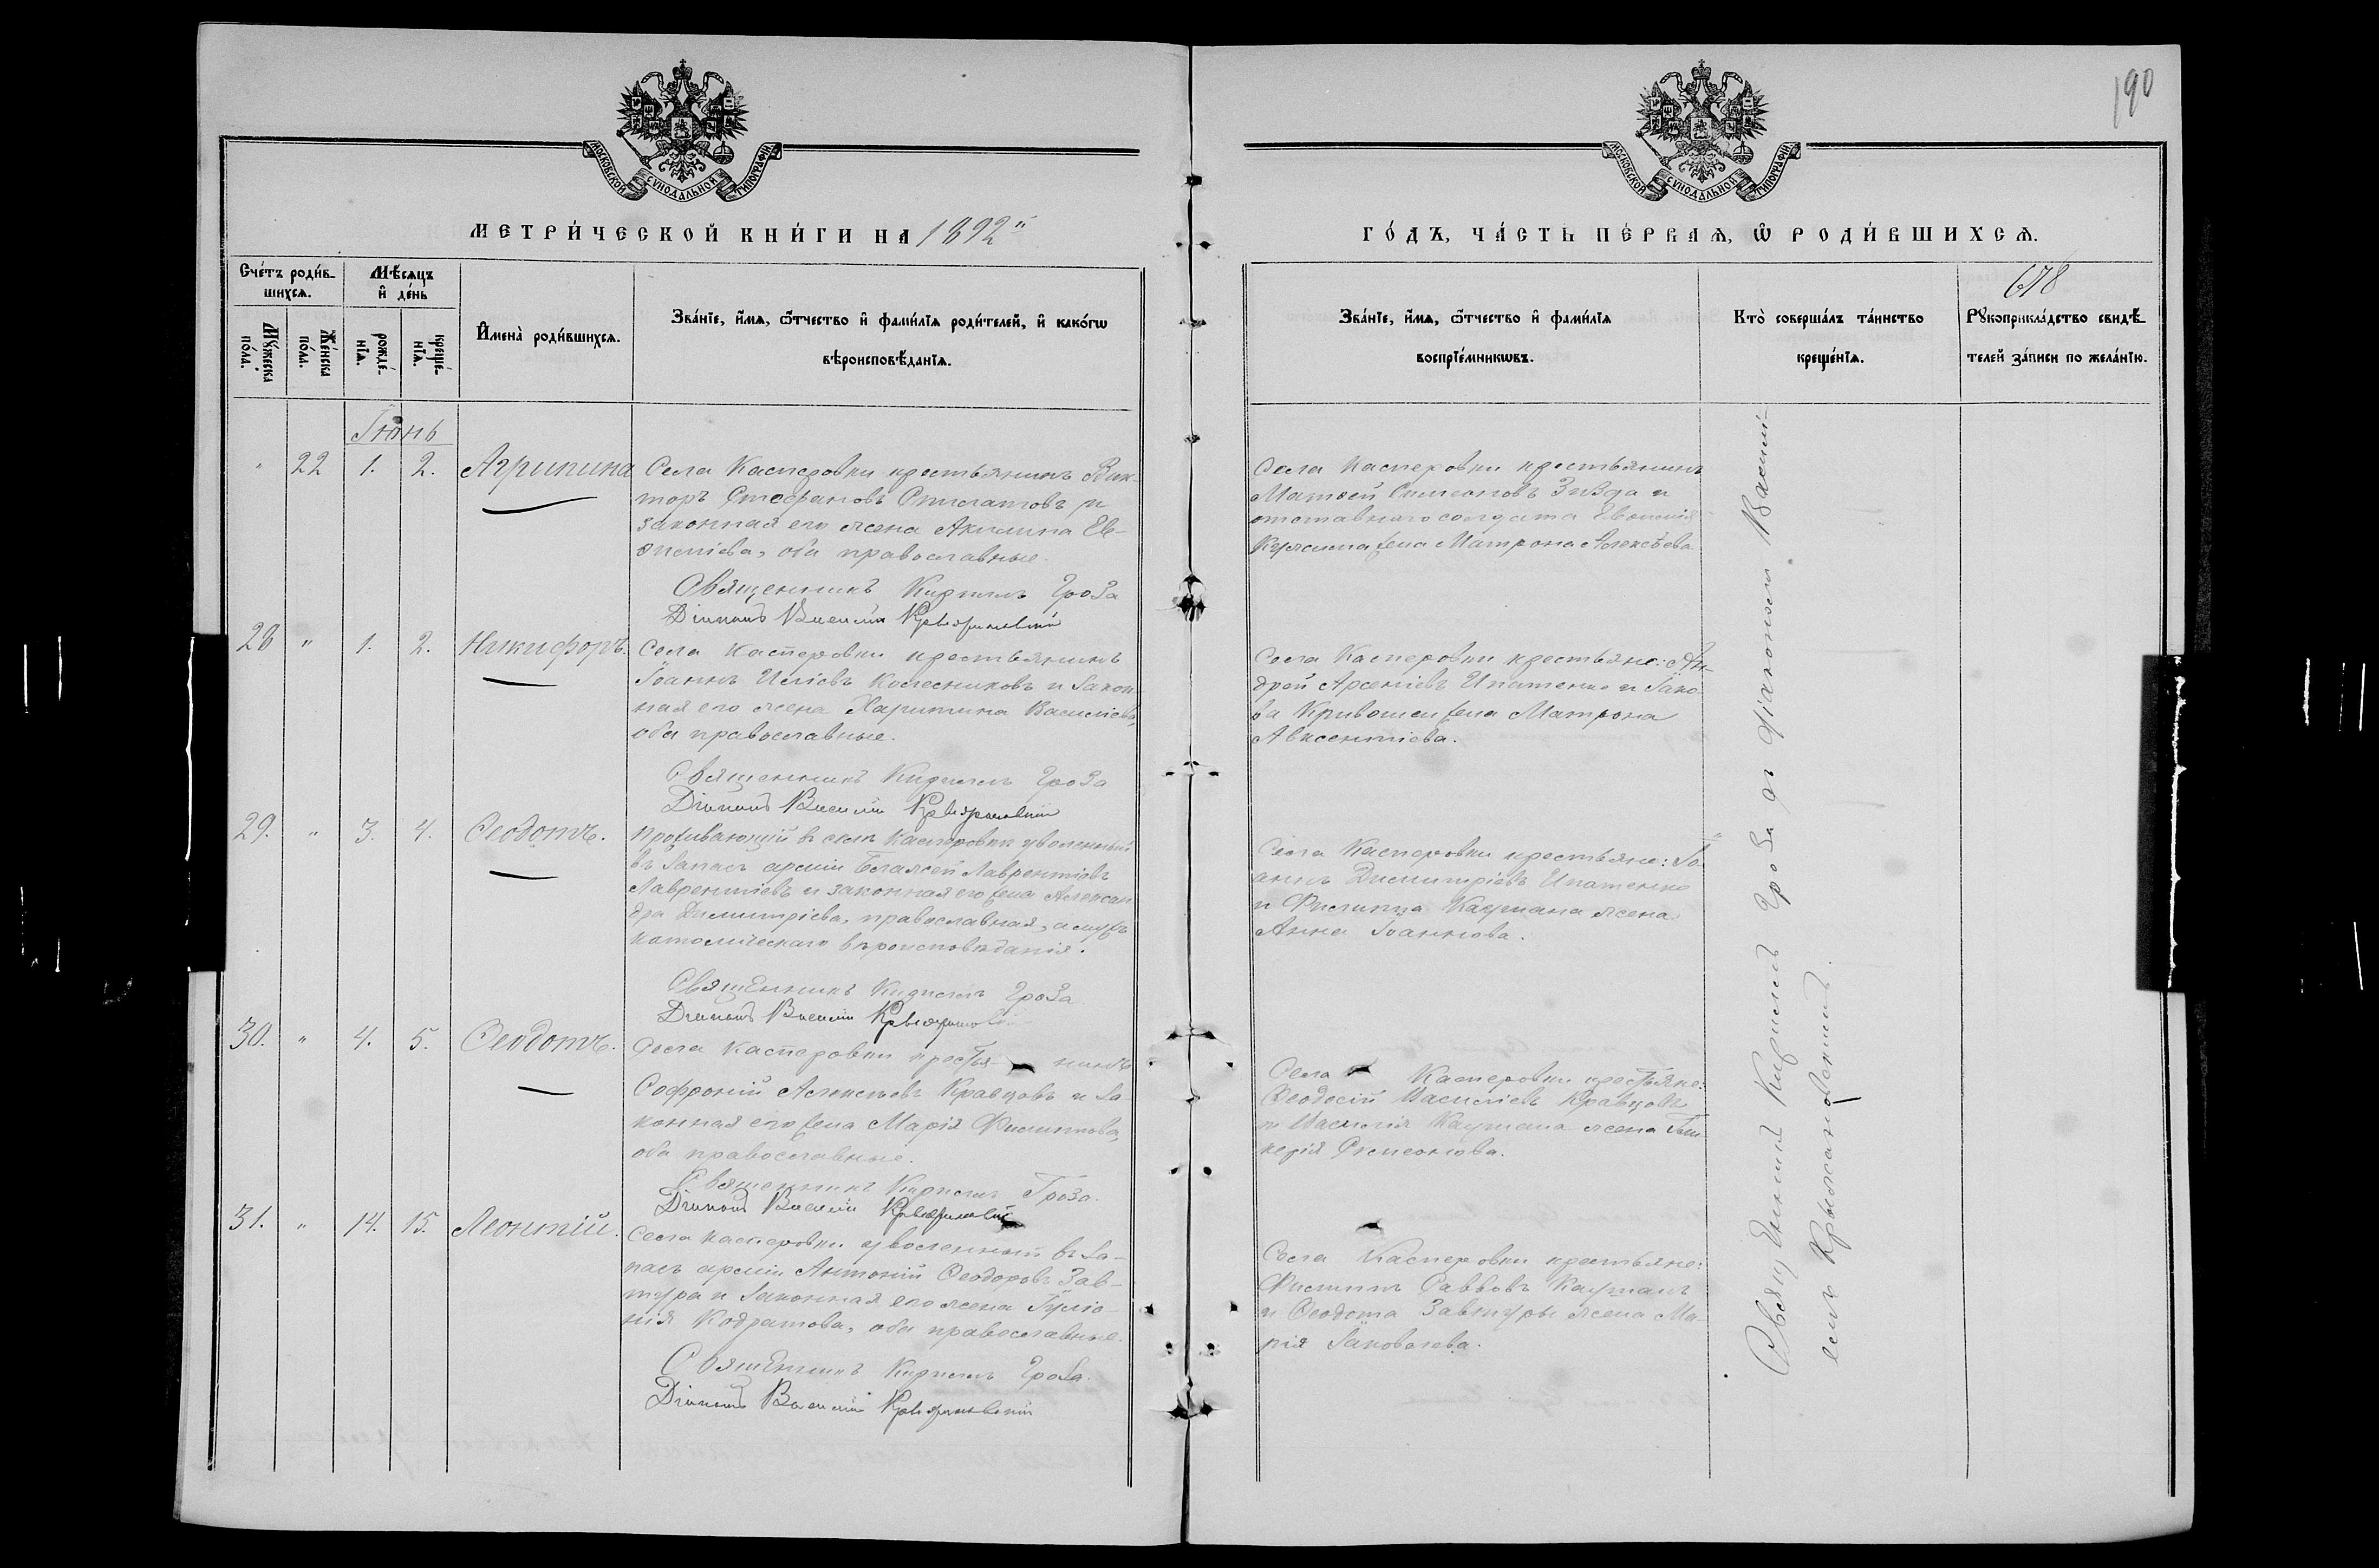 190
МОСКОВСКОЙ СѴНОДАЛЬНОЙ ТИПОГРАФІИ
МОСКОВСКОЙ СѴНОДАЛЬНОЙ ТИПОГРАФІИ
МЕТРИ́ЧЕСКОЙ КНИ́ГИ НА 1892й
ГО́ДЪ, ЧА́СТЬ ПЕ́РВАЯ, Ѡ РОДИ́ВШИХСЯ.
Сче́тъ роди́в-
шихся.
Мѣ́сяцъ
и҆ де́нь
Мꙋ́жеска
по́ла.
Же́нска
по́ла.
рожде́-
нїя.
креще́-
нїя.
И҆мена̀ роди́вшихся.
Зва́нїе, и҆́мя, ѻ҆́тчество и҆ фами́лїя роди́телей, и҆ како́гѡ
вѣроисповѣ́данїя.
Зва́нїе, и҆́мя, ѻ҆́тчество и҆ фами́лїя
воспрїе́мникѡвъ.
Кто̀ соверша́лъ та́инство
креще́нїя.
678
Рꙋкоприкла́дство свидѣ́-
телей за́писи по жела́нїю.
Іюнь
" 22 1. 2. Агрипина
Села Касперовки крестьянинъ Вик-
торъ Стефановъ и
законная его жена Акилина Ев-
оиміева, оба православные.
Священникъ Кирилъ Гроза
Діаконъ Василій Крыжановскій
Села Касперовки крестьянинъ
Матөей Симеоновъ и
отставнаго солдата Евѳимія
жена Матрона Алексѣева.
28 " 1. 2. Никифоръ.
Села Касперовки крестьянинъ
Іоаннъ Иліевъ Колесниковъ и закон-
ная его жена Харитина Василіева,
оба православные.
Священникъ Кирилъ Гроза
Діаконъ Василій Крыжановскій
Села Касперовки крестьяне: Ан-
дрей Арсеніевъ Ипатенко и Іако-
ва Кривошеи жена Матрона
Авксентіева.
29. " 3. 4. Ѳеодотъ.
Проживающій въ селѣ Касперовкѣ уволенный
въ запасъ арміи Лаврентіевъ
Лаврентіевъ и законная его жена Алексан-
дра Димитріева, православная, а мужъ
католическаго вѣроисповѣданія.
Священникъ Кирилъ Гроза
Діаконъ Василій Крыжановскій
Села Касперовки крестьяне: Іо-
аннъ Димитріевъ Ипатенко
и Филиппа Кацмана жена
Анна Іоаннова.
30. " 4. 5. Ѳеодотъ.
Села Касперовки крестья нинъ
Софроній Алексѣевъ Кравцовъ и за-
конная его жена Марія Филиппова,
оба православные.
Священникъ Кирилъ Гроза.
Діаконъ Василій Крыжановскій
Села Касперовки крестьяне:
Ѳеодосій Василіевъ Кравцовъ
и Василія Кацмана жена Гли-
керія Симеонова.
31. " 14. 15. Леонтій.
Села Касперовки уволенный въ за-
пасъ арміи Антоній Ѳеодоровъ Зав-
тура и законная его жена Іуліа-
нія Кодратова, оба православные.
Священникъ Кирилъ Гроза.
Діаконъ Василій Крыжановскій
Села Касперовки крестьяне:
Филиппъ Саввовъ Кацманъ
и Ѳеодота Завтуры жена Ма-
рія Іаковлева.
Священникъ Кирилъ Гроза съ діакономъ Василі-
емъ Крыжановскимъ.